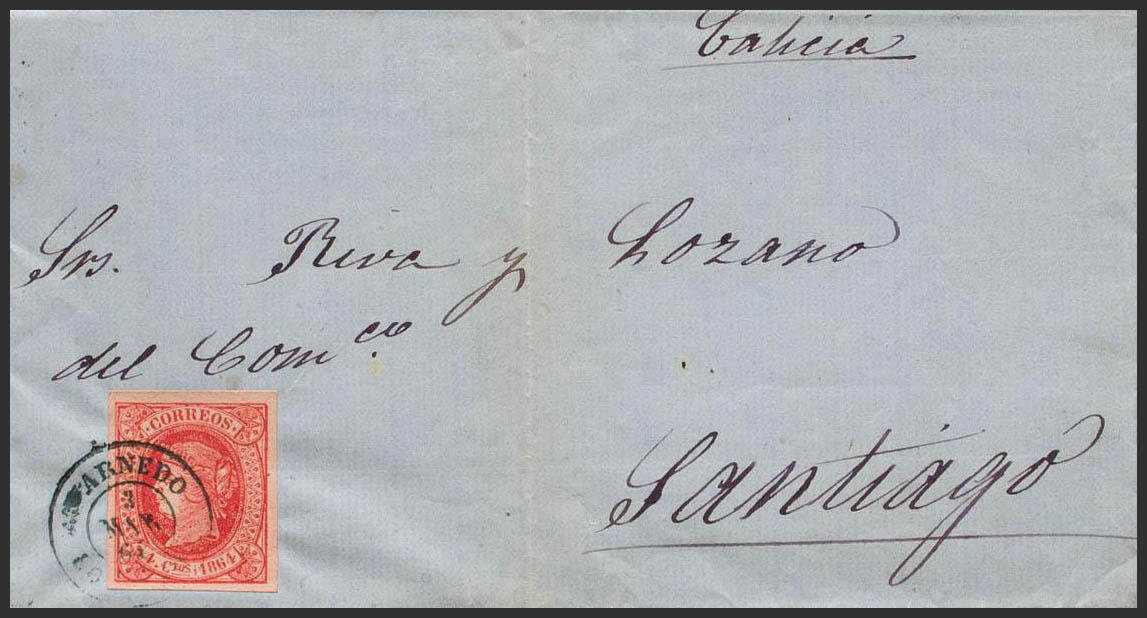 Galicia
Srs. Riva y Lozano
del Com.co
Santiago
CORREOS
ARNEDO
3
MAR
64
4 CTOS 1864